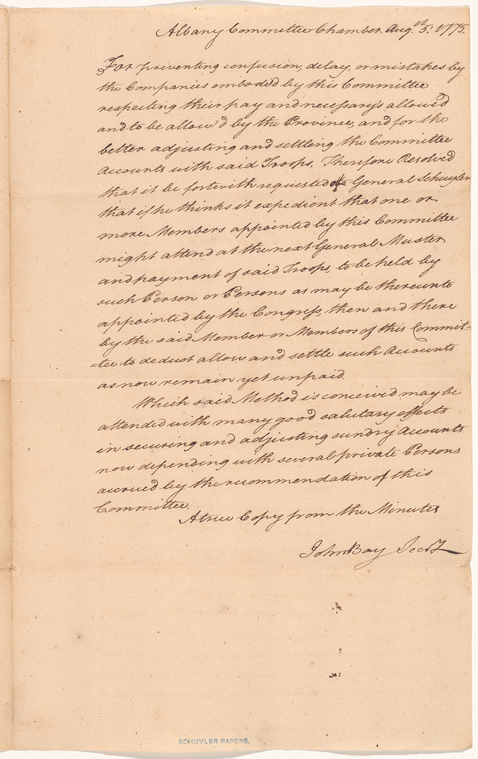 Albany Committee Chamber Aug.st 5. 1775.
For preventing confusion, delay, or mistakes by
the Companies emboded by this Committee
respecting their pay and necessary's allowed
and to be allow'd by the Province, and for the
better adjusting and settling the Committee
Accounts with said Troops. Therefore Resolved
that it be forthwith requested of General Schuyler
that if he thinks it expedient that one or
more Members appointed by this Committee
might attend at the next General Muster
and payment of said Troops, to be held by
such Person or Persons as may be thereunto
appointed by the Congress, then and there
by the said Member or Members of this Commit-
=tee to deduct allow and settle such Accounts
as now remain yet unpaid.
Which said Method is conceived may be
attended with many good salutary effects
in securing and adjusting sundry Accounts
now depending with several private Persons
accrued by the recommendation of this
Committee.
A true Copy from the Minutes
John Bay Secry
SCHUYLER PAPERS.